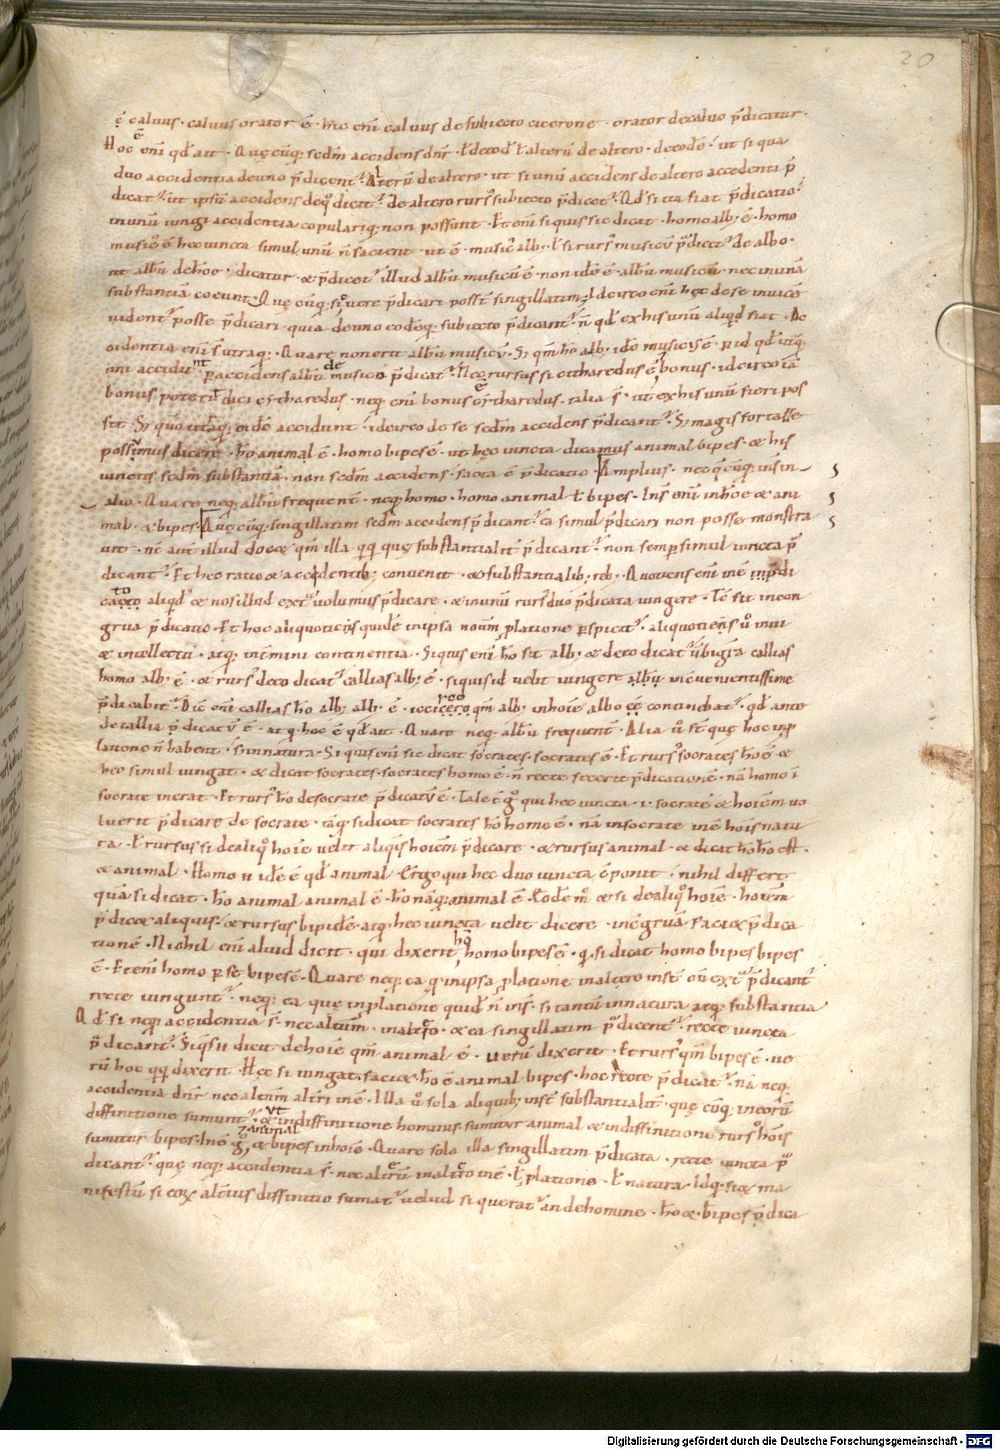 20
ę calvus · calvus orator ē · hic eni calvus de subiecto cicerone · orator decalvo p̄dicatur ·
Hoc ē eni qd̄ ait · Quęcūq; scdm accidens dn̄r · ł decod̄ ł alterū de altero · decodē · ut si qua
duo accidentia deuno p̄dicent᷑ · Alterū de altero · ut si unū accidens de altero accedenti p̄
dicat᷑ · ut ipsū accidens deq° dicit᷑ · de altero rurs᷒ subiecto p̄dicet᷑ · Qd̄ si ita fiat p̄dicatio ·
inunū iungi accidentia copulariq; non possunt · Et eni siquis sic dicat · homo alb; ē · homo
musicꝰ ē hec iuncta simul unū n̄ facient · ut ē · musicꝰ alb; · ł si rursꝰ musicū p̄dicet᷑ de albo ·
ut albū de hoē · dicatur · & p̄dicet᷑ illud albū musicū ē · non idē ē · albū musicū · nec inunā
substantiā coeunt · Quęcūq; si vere p̄dicari posst̄ singillatim · Idcirco eni hęc de se invicē
vident᷑ posse p̄dicari · quia deuno eodēq; subiecto p̄dicant᷑ · n̄ qd̄ ex his unū aliqd fiat · Ac
cidentia eni s̄ utraq; · Quare non erit albū musicū · Sꝫ qm̄ hō alb; idē musicus ē · P̱ id qd̄ utq;
uni accidunt p̱ accidens albū de musico p̄dicat᷑ · Nec rursus si citharedus ē bonus · idcirco iā
bonus poterit dici cytharedus · neq; eni bonus ē cytharedus · talia s̄ · ut ex his unū fieri pos
sit · Sꝫ quō utraq; eidē accidunt · idcirco de se scdm accidens p̄dicant᷑ · Sꝫ magis fortasse
possimus dicere · hō animal ē · homo bipes ē · ut hęc iuncta dicamus animal bipes · & his
iunctis scdm substantiā · non scdm accidens · facta ē p̄dicatio · Amplius · nec quęcūq; insin
alio · Quare neq; albū frequent᷑ · neq; homo · homo animal ł bipes · Ins̄ eni in hōe & ani
mal · & bipes · Quęcūq; singillatim scdm accidens p̄dicant᷑ · ea simul p̄dicari non posse monstra
vit · nc̄ aut illud docet qm̄ illa qq; quę substantialit p̄dicant᷑ · non semp̱ simul iuncta p̄
dicant᷑ · Et hec ratio & accidentib; convenit · & substantialib; reb; · Quotiens eni inē in p̄di
cato aliqd̄ & nos illud ext᷑ volumus p̄dicare · & inunū rursꝰ duo p̄dicata iungere · Tc̄ fit incon
grua p̄dicatio · Et hoc aliquotiens quidē inipsa nominū platione p̱spicit᷑ · aliquotiens v° inui
& intellectu · atq; in t̄mini continentia · Siquis eni hō sit alb; & deeo dicat᷑ ubigra callias
homo alb; ē · & rursꝰ deeo dicat᷑ callias alb; ē · siquis id velit iungere albū inconvenientissime
p̄dicabit᷑ · Dic̄ eni callias hō alb; alb; ē · iccirco qm̄ alb; inhoīe albo continebat᷑ · qd̄ ante
de callia p̄dicatū ē · atq; hoc ē qd̄ ait · Quare neq; albū frequent᷑ · Alia v° s̄t quę hoc in p̱
latione n̄ habent · s; in natura · Siquis eni sic dicat socrates · socrates ē · Et rursꝰ socrates hō ē &
hec simul iungat · & dicat socrates · socrates homo ē · n̄ recte fecerit p̄dicationē · nā homo ī
socrate inerat · Et rursꝰ hō desocrate p̄dicatū ē · Tale ē g° qui hec iuncta · i · socratē & hoīem vo
luerit p̄dicare de socrate · tāq; si dicat socrates hō homo ē · nā in socrate inē hoīs natu
ra · ł rursus si dealiq° hoīe velit aliquis hoīem p̄dicare · & rursus animal · & dicat hō hō est
& animal · Homo u idē ē qd̄ animal · Ergo qui hec duo iuncta ēponit · nihil differt
quā si dicat · hō animal animal ē · hō nāq; animal ē · Eodē m° & si dealiq° hoīe · hoīem
p̄dicet aliquis · & rursus bipidē · atq; hec iuncta velit dicere · incōgruā faciet p̄dica
tionē · Nichil eni aliud dicit · qui dixerit hō homo bipes ē · q̄ si dicat homo bipes bipes
ē · Et eni homo p̱ se bipes ē · Quare neq; ea q̄ inipsa platione in altero inst̄ cū ext᷑ p̄dicant᷑
recte iungunt᷑ · neq; ea quę in platione quid̄ n̄ ins̄ · si tantū in natura atq; substantia
Qd̄ si neq; accidentia s̄ · nec altm̄ · in altr̄o · & ea singillatim p̄dicent᷑ · recte iuncta
p̄dicant᷑ · Siqs u dicit de hoīe qm̄ animal ē · verū dixerit · Et rursꝰ qm̄ bipes ē · ve
rū hoc qq; dixerit · Hęc si iungat · faciet hō ē animal bipes · hoc recte p̄dicat᷑ · nā neq;
accidentia dn̄r nec altm̄ altri inē · Illa v° sola aliquib; inst̄ substantialit᷑ · quę cūq; ineorū
diffinitione sumunt᷑ · ut & in diffinitione hominis sumitur animal & indiffinitione rursꝰ hoīs
sumitur bipes · Inē g° ⁊ animal & bipes inhoīe · Quare sola illa singillatim p̄dicata · recte iuncta p̄
dicant᷑ · quę neq; accidentia s̄ · nec altr̄um in altr̄o inē · ł platione · ł natura · Idq; fiet ma
nifestū si eoꝝ altr̄ius diffinitio sumat᷑ · velud si querat᷑ an de homine · hō & · bipes p̄dica
Digitalisierung gefördert durch die Deutsche Forschungsgemeinschaft - DFG